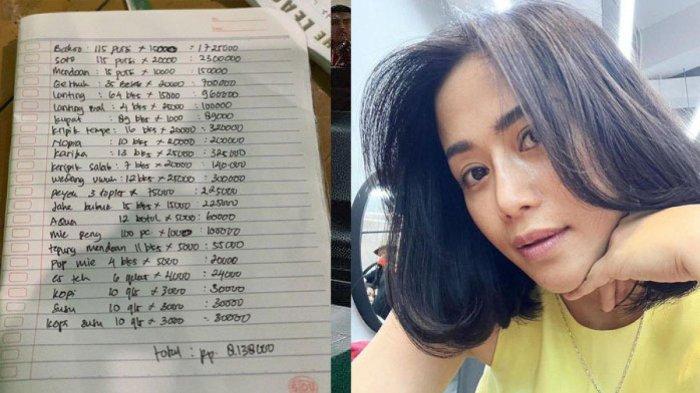 THE LEA
Bakso : 115 porsi x 15000 : 1725000
Soto : 115 porsi x 20000 : 2300000
Mendoan : 15 porsi x 10000 : 150000
Getuk : 35 besek x 20000 : 700000
Lanting : 64 bks x 15000 : 960000
Lanting bal : 4 bks x 25000 : 100000
kupat : 89 bks x 1000 : 89000
kripik tempe : 16 bks x 20000 : 320000
Nopia : 10 bks x 20000 : 200000
karika : 13 bks x 25000 : 325000
keripik salak : 7 bks x 20000 : 140000
wedang uwuh : 12 bks x 25000 : 300000
peyek 3 toples x 75000 : 225000
Jahe bubuk 15 bks x 15000 : 225000
Aqua 12 botol x 5000 : 60000
mie 100 pc x 1000 : 100000
tepung mendoan 11 bks x 5000 : 55000
pop mie 4 bks x 5000 : 20000
es teh 6 gelas x 4000 : 24000
kopi 10 gls x 3000 : 30000
susu 10 gls x 3000 : 30000
kopi susu 10 gls x 3000 : 30000
total : Rp. 8.138000
SIDU